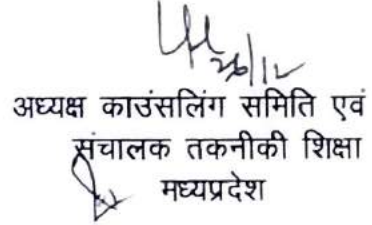 26/12
अध्यक्ष काउंसलिंग समिति एवं
संचालक तकनीकी शिक्षा
मध्यप्रदेश